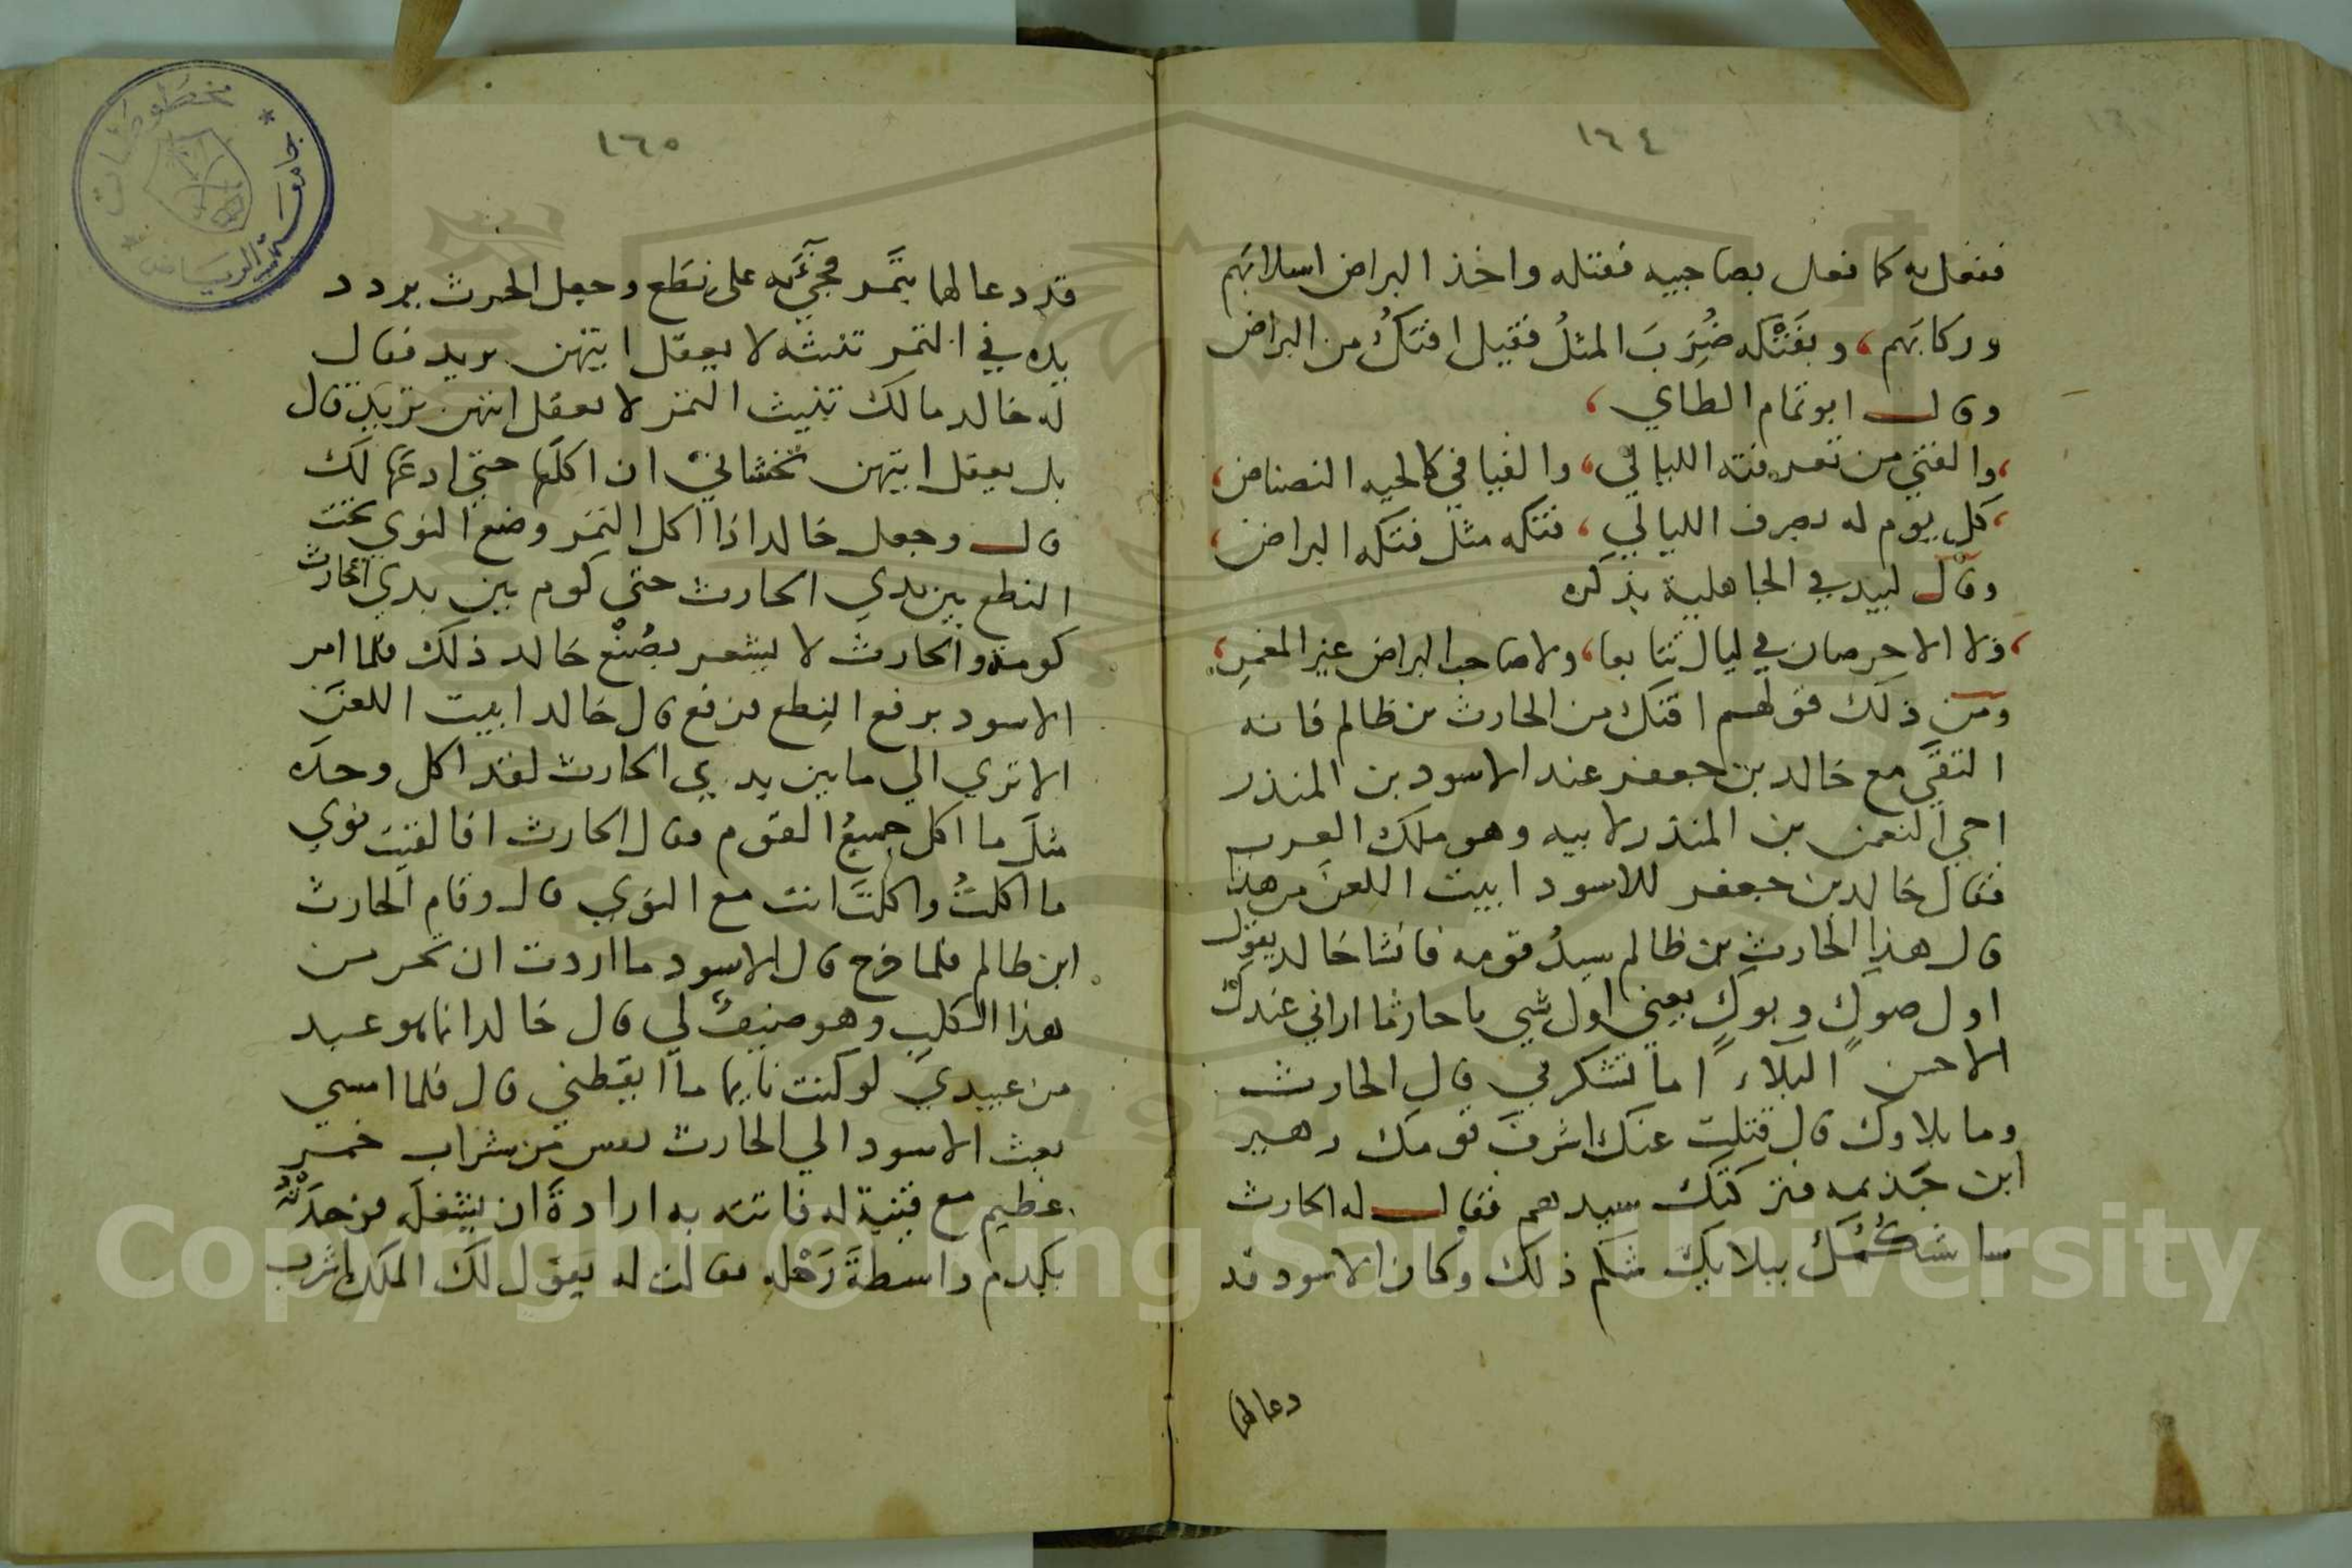 ١٦٤
ففعل به كما فعل بصاحبيه فقتله واخذ البراض اسلابهم
وركابَهم، وبفَتْكه ضُرِبَ المثلُ فقيل افتَكُ من البراض
وقال ابو تمام الطاي،
،والفتي من تعرفته الليالي، والفيافي كالحيه النضناض،
،كل يوم له بصرف الليالي، فتكه مثل فتكه البراض،
وقال لبيد في الجاهلية يذكره
ومن ذلك قولهم افتك من الحارث بن ظالم فانه
التقي مع خالد بن جعفر عند الاسود بن المنذر
اخي النعمن بن المنذر لابيه وهو ملك العرب
فقال خالد بن جعفر للاسود ابيت اللعن من هذا
قال هذا الحارث بن ظالم سيدُ قومه فانشا خالد يقول
اول صوكٍ وبوكٍ يعني اول شي ياحار ما اراني عندك
الا حسن البلاء اما تشكرني قال الحارث
وما بلاوك قال قتلت عنك اشرفَ قومك زهير
ابن جَذيمه فتركتك سيدهم فقال له الحارث
ساشكُمُك ببلايك شكم ذلك وكان الاسود قد
دعا لهما
١٦٥
قد دعا لهما بتَمر فجيَ به على نِطَع وجعل الحرث يردد
يده في التمر تنبثه لا يعقل ايتهن يريد فقال
له خالد مالك تنبث التمر لا تعقل ايتهن تريد قال
بل يعقل ايتهن تخشاني ان اكلَها حتي ادعَها لك
قال وجعل خالد اذا اكل التمر وضع النوي تحت
النطع بين يدي الحارث حتي كوم بين يدي الحارث
كومة والحارث لا يشعر بصُنْع خالد ذلك فلما امر
الاسود برفع النِطع فرفع قال خالد ابيت اللعنَ
الا تري الي ما بين يدي الحارث لقد اكل وحده
مثلَ ما اكل جميعُ القوم فقال الحارث انا لقيت نوي
ما اكلتُ واكلتَ انت مع النوي قال وقام الحارث
ابن ظالم فلما خرج قال الاسود ما اردت ان تحرس
هذا الكلب وهو ضيفٌ لي قال خالد انما هو عبد
من عبيدي لو كنت نايما ما ايقظني قال فلما امسي
بعث الاسود الي الحارث بعس من شراب خمر
عظيم مع قينية له فاتته به ارادةَ ان يشغلَه فوجدَتْهُ
يكدم واسطةَ رَحْله فقالت له يقول لك الملك اشرب
جامعة الرياض
مخطوطات
Copyright © King Saud University